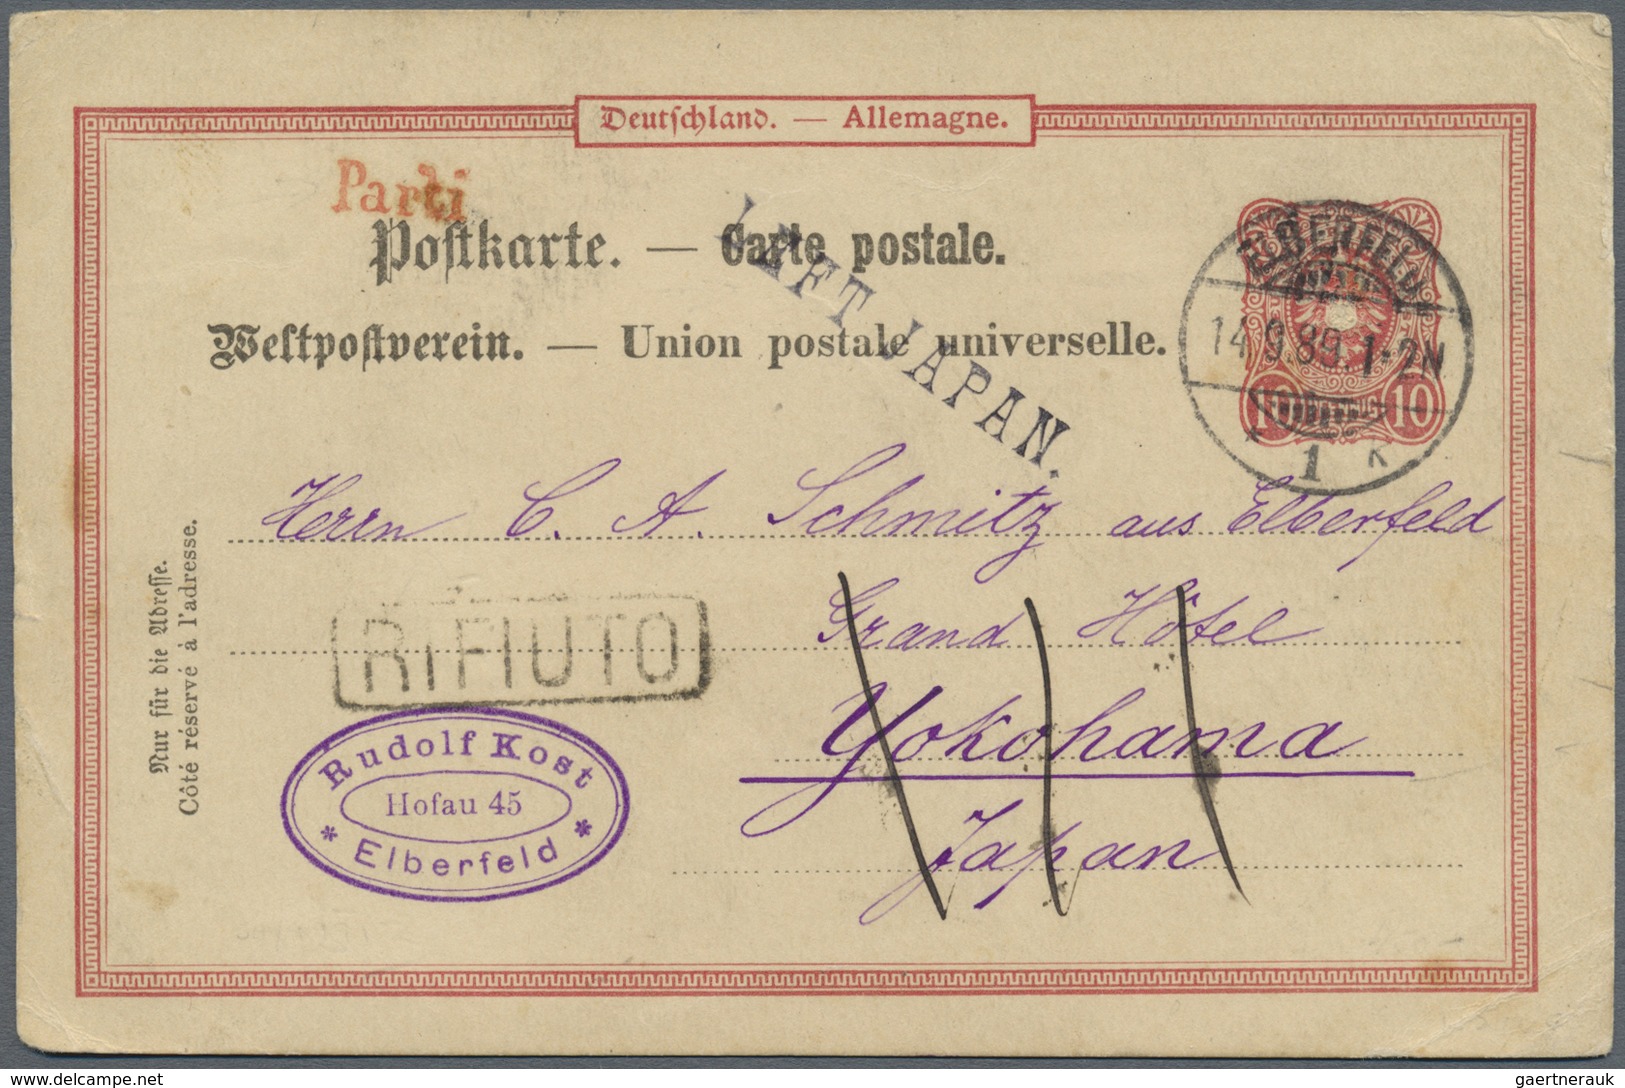 Deutschland. — Allemagne.
Parti
Postkarte. — Carte postale.
LEFT JAPAN.
Weltpostverein. — Union postale universelle.
ELBERFELD
14.9.89.1-2N.
* 1 K
10 10
Herrn C. A. Schmitz aus Elberfeld
Grand Hôtel
Yokohama
Japan
RIFIUTO
Rudolf Kost
Hofau 45
* Elberfeld *
Nur für die Adresse.
Côté réservé à l'adresse.
www.delcampe.net
gaertnerauk